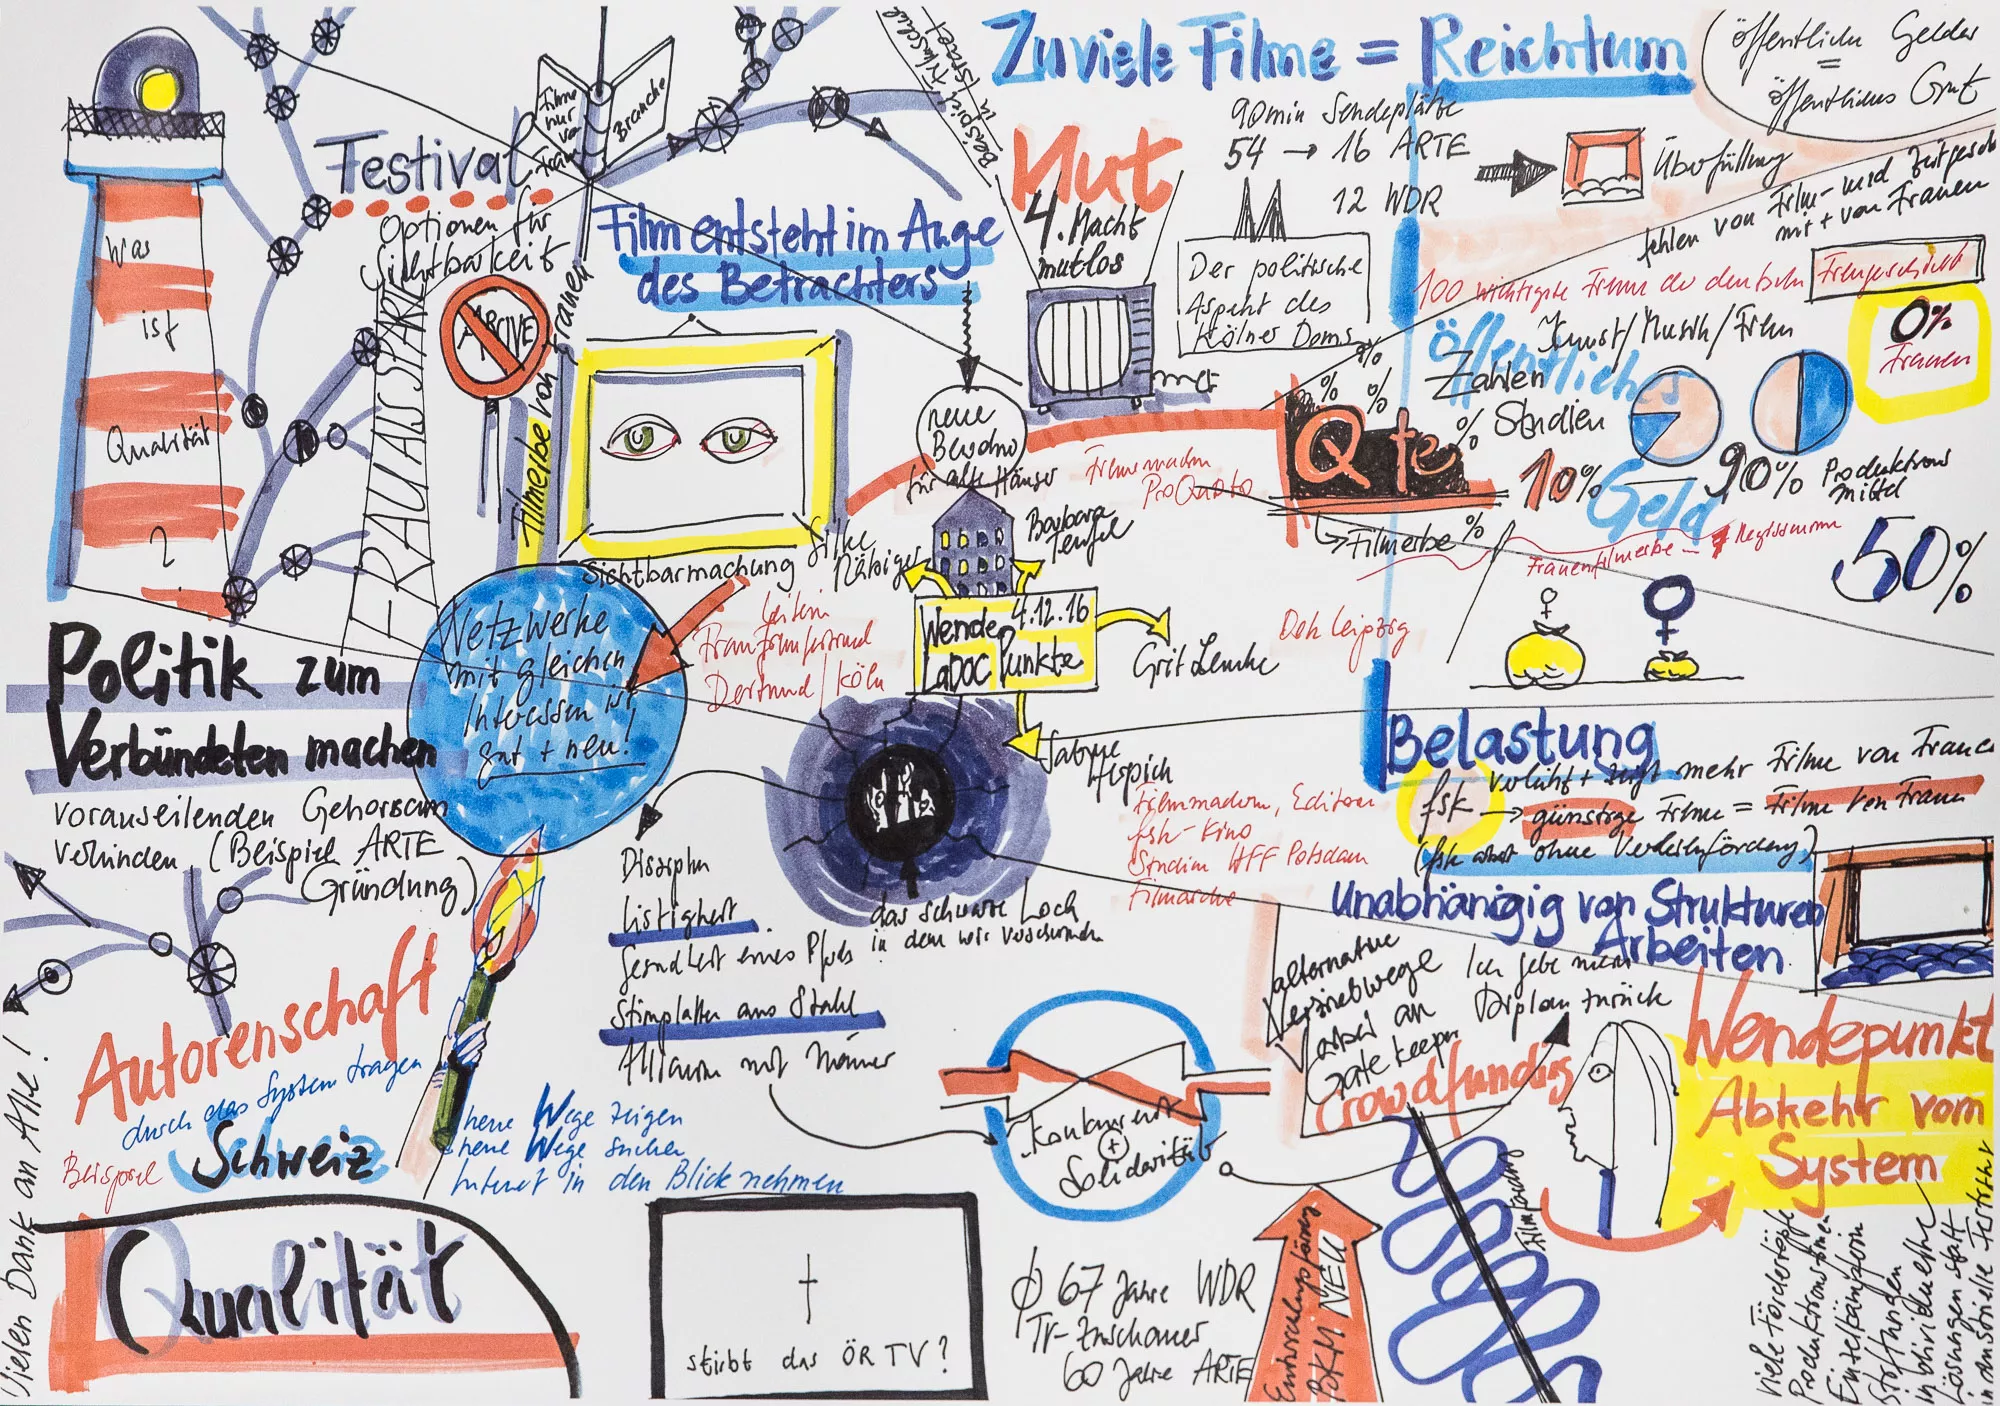 Was
ist
Qualität
?
Festival
Optionen für
Sichtbarkeit
Filme
nur von
Frauen
Branche
FRAU ALS START
ARCIVE
Filmerbe von Frauen
Film entsteht im Auge
des Betrachters
Sichtbarmachung
Beispiel Tv Tunschuk
in Israel
Zuviele Filme = Reichtum
öffentliche Gelder
=
öffentliches Gut
90min Sendeplätze
54 → 16 ARTE
12 WDR
Überfüllung
Mut
4. Macht
mutlos
Der politische
Aspekt des
Kölner Doms
fehlen von Film- und Zeitgesch
mit + von Frauen
100 wichtigste Filme der deutschen Filmgeschichte
0%
Frauen
Kunst/Musik/Film
öffentliches
Geld
Zahlen
% Studien
% % % %
Q te
10%
90% Produktions
mittel
50%
Filmerbe %
Frauenfilmerbe
neue
Bewohner
für alte Häuser
Filmemacherin
ProQuote
Silke
Räbiger
Barbara
Teufel
Wende 4.12.16
LaDOC Punkte
Grit Lemke
Dok Leipzig
Leiterin
Frauenfilmfestival
Dortmund/Köln
Sabine
Herpich
Filmmacherin, Editorin
fsk-Kino
Studium HFF Potsdam
Filmarche
Politik zum
Verbündeten machen
vorauseilenden Gehorsam
verhindern (Beispiel ARTE
Gründung)
Netzwerke
mit gleichen
Interessen ist
gut + neu!
Disziplin
Listigkeit
Gesundheit eines Pferds
Stirnplatten aus Stahl
Allianzen mit Männer
das schwarze Loch
in dem wir verschwinden
Belastung
fsk verleiht + zeigt mehr Filme von Frauen
→ günstige Filme = Filme von Frauen
(fsk arbeitet ohne Verleihförderung)
Unabhängig von Strukturen
Arbeiten
alternative
Vertriebswege
vorbei an
Gate keepern
Ich gebe mein
Diplom zurück
Crowdfunding
Wendepunkt
Abkehr vom
System
Autorenschaft
durch das System tragen
Beispiel Schweiz
neue Wege zeigen
neue Wege suchen
Internet in den Blick nehmen
Konkurrenz
+
Solidarität
Vielen Dank an Alle!
Qualität
stirbt das ÖR TV?
ϕ 67 Jahre WDR
TV-Zuschauer
60 Jahre ARTE
Entwicklungsförderung
BKM NEU
Filmförderung
Viele Fördertöpfe
Produktionsfirmen
Einzelkämpferin
Stiftungen
individuelle
Lösungen statt
industrielle Fertigung